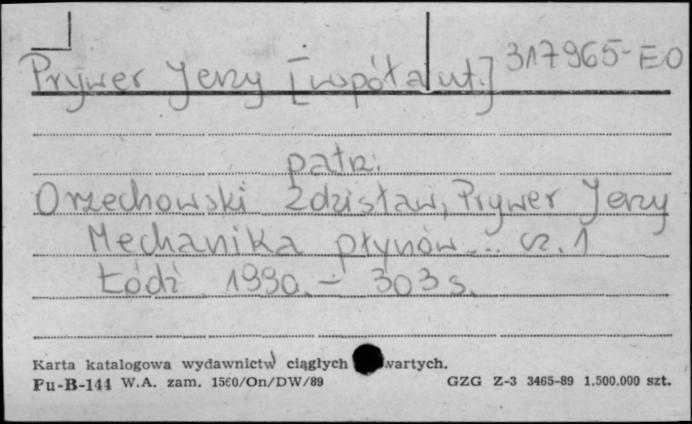 Prywer Jerzy [współaut.] 317965-EO
patrz:
Orzechowski Zdzisław, Prywer Jerzy
Mechanika płynów... cz. 1
Łódź 1990. - 303 s.
Karta katalogowa wydawnictw ciągłych wartych.
Pu-B-144 W.A. zam. 1560/On/DW/89 GZG Z-3 3465-89 1.500.000 szt.